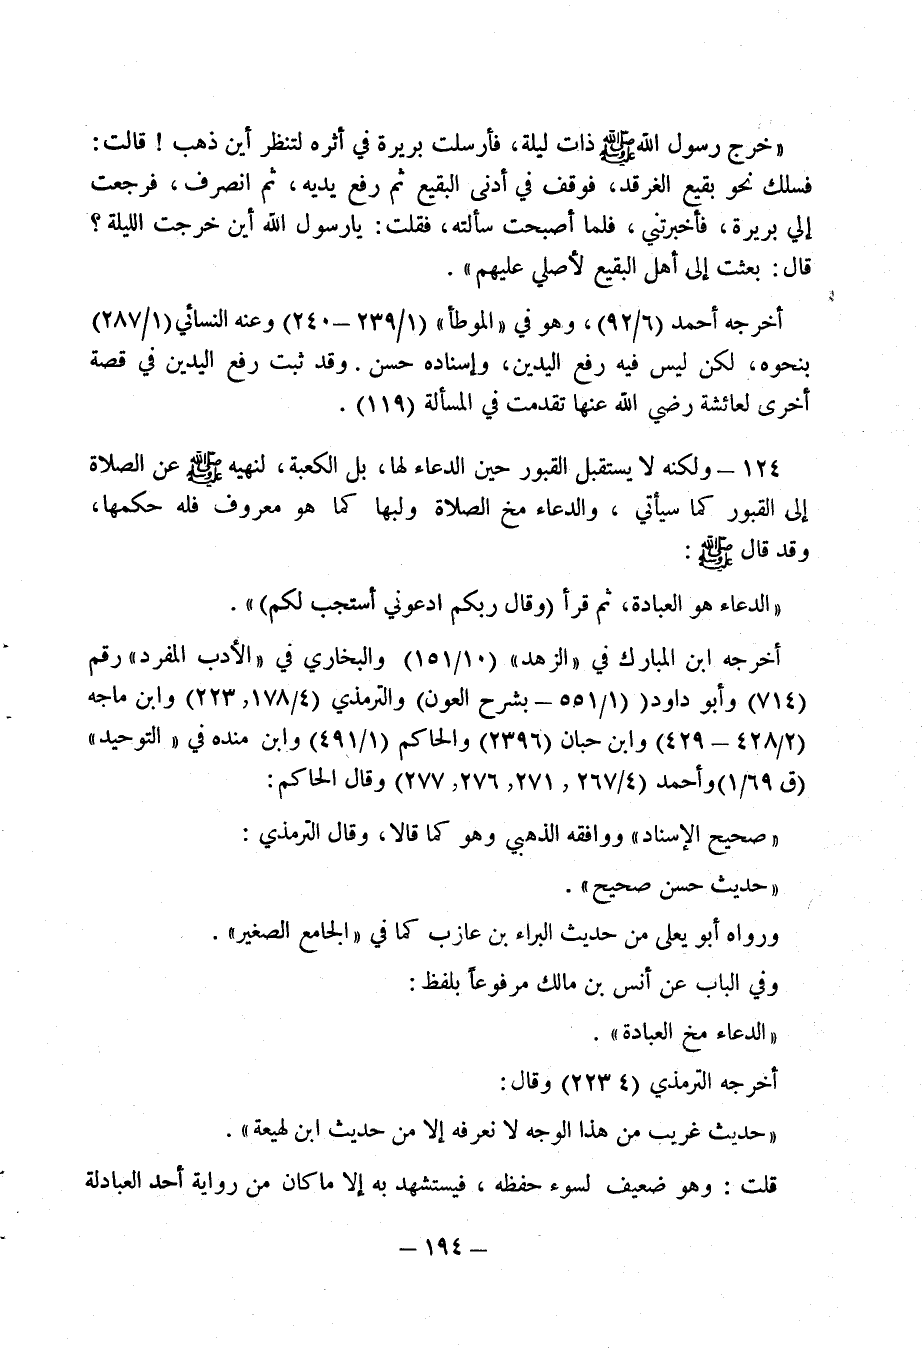 «خرج رسول الله ﷺ ذات ليلة، فأرسلت بريرة في أثره لتنظر أين ذهب ! قالت:
فسلك نحو بقيع الغرقد، فوقف في أدنى البقيع ثم رفع يديه، ثم انصرف، فرجعت
إلي بريرة، فأخبرتني، فلما أصبحت سألته، فقلت: يارسول الله أين خرجت الليلة ؟
قال: بعثت إلى أهل البقيع لأصلي عليهم» .
أخرجه أحمد (٩٢/٦)، وهو في «الموطأ» (٢٣٩/١ – ٢٤٠) وعنه النسائي(٢٨٧/١)
بنحوه، لكن ليس فيه رفع اليدين، وإسناده حسن. وقد ثبت رفع اليدين في قصة
أخرى لعائشة رضي الله عنها تقدمت في المسألة (١١٩) .
١٢٤ – ولكنه لا يستقبل القبور حين الدعاء لها، بل الكعبة، لنهيه ﷺ عن الصلاة
إلى القبور كما سيأتي ، والدعاء مخ الصلاة ولبها كما هو معروف فله حكمها،
وقد قال ﷺ :
«الدعاء هو العبادة، ثم قرأ (وقال ربكم ادعوني أستجب لكم)» .
أخرجه ابن المبارك في «الزهد» (١٥١/١٠) والبخاري في «الأدب المفرد» رقم
(٧١٤) وأبو داود( (٥٥١/١ – بشرح العون) والترمذي (١٧٨/٤, ٢٢٣) وابن ماجه
(٤٢٨/٢ – ٤٢٩) وابن حبان (٢٣٩٦) والحاكم (٤٩١/١) وابن منده في « التوحيد»
(ق ١/٦٩)وأحمد (٢٦٧/٤ , ٢٧١, ٢٧٦, ٢٧٧) وقال الحاكم:
«صحيح الإسناد» ووافقه الذهبي وهو كما قالا، وقال الترمذي :
«حديث حسن صحيح» .
ورواه أبو يعلى من حديث البراء بن عازب كما في «الجامع الصغير» .
وفي الباب عن أنس بن مالك مرفوعاً بلفظ:
«الدعاء مخ العبادة» .
أخرجه الترمذي (٤ ٢٢٣) وقال:
«حديث غريب من هذا الوجه لا نعرفه إلا من حديث ابن لهيعة» .
قلت : وهو ضعيف لسوء حفظه ، فيستشهد به إلا ماكان من رواية أحد العبادلة
– ١٩٤ –